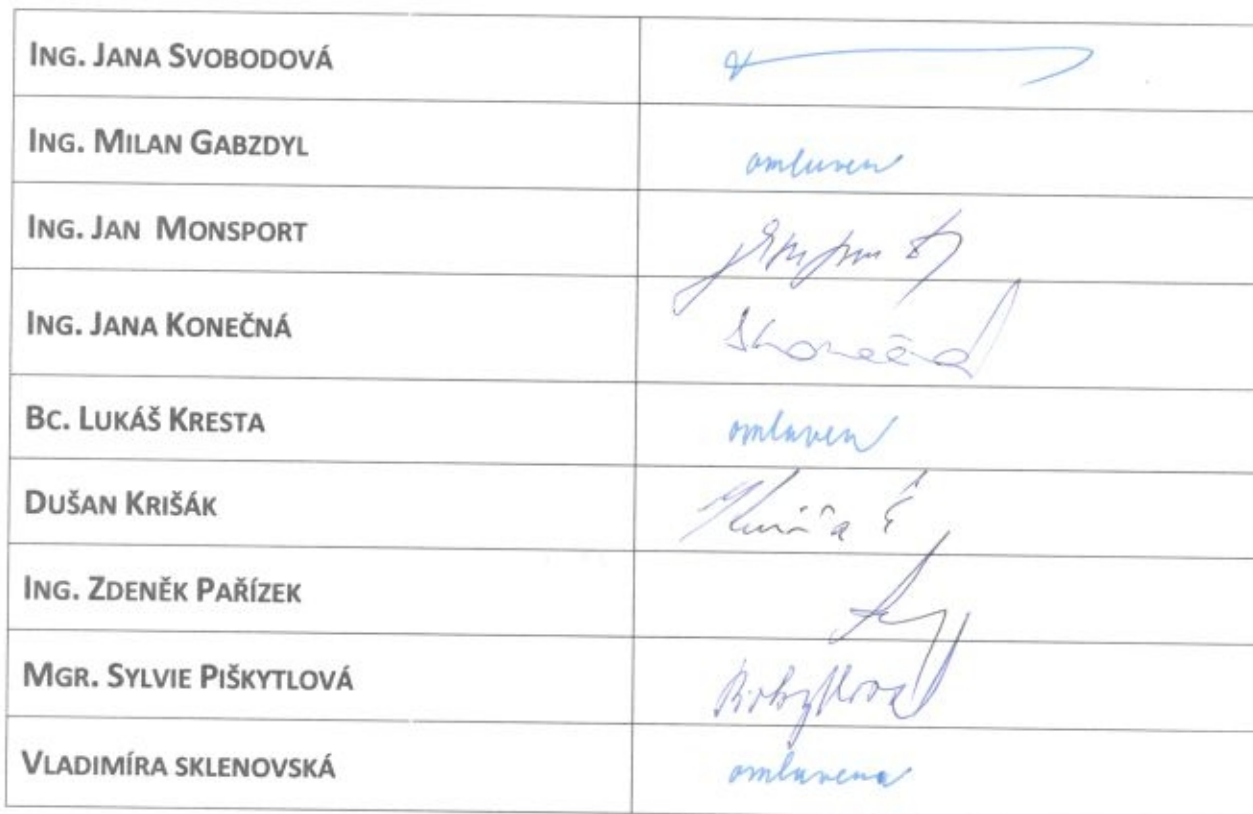 ING. JANA SVOBODOVÁ
ING. MILAN GABZDYL omluven
ING. JAN MONSPORT
ING. JANA KONEČNÁ
BC. LUKÁŠ KRESTA omluven
DUŠAN KRIŠÁK
ING. ZDENĚK PAŘÍZEK
MGR. SYLVIE PIŠKYTLOVÁ
VLADIMÍRA SKLENOVSKÁ omluvena